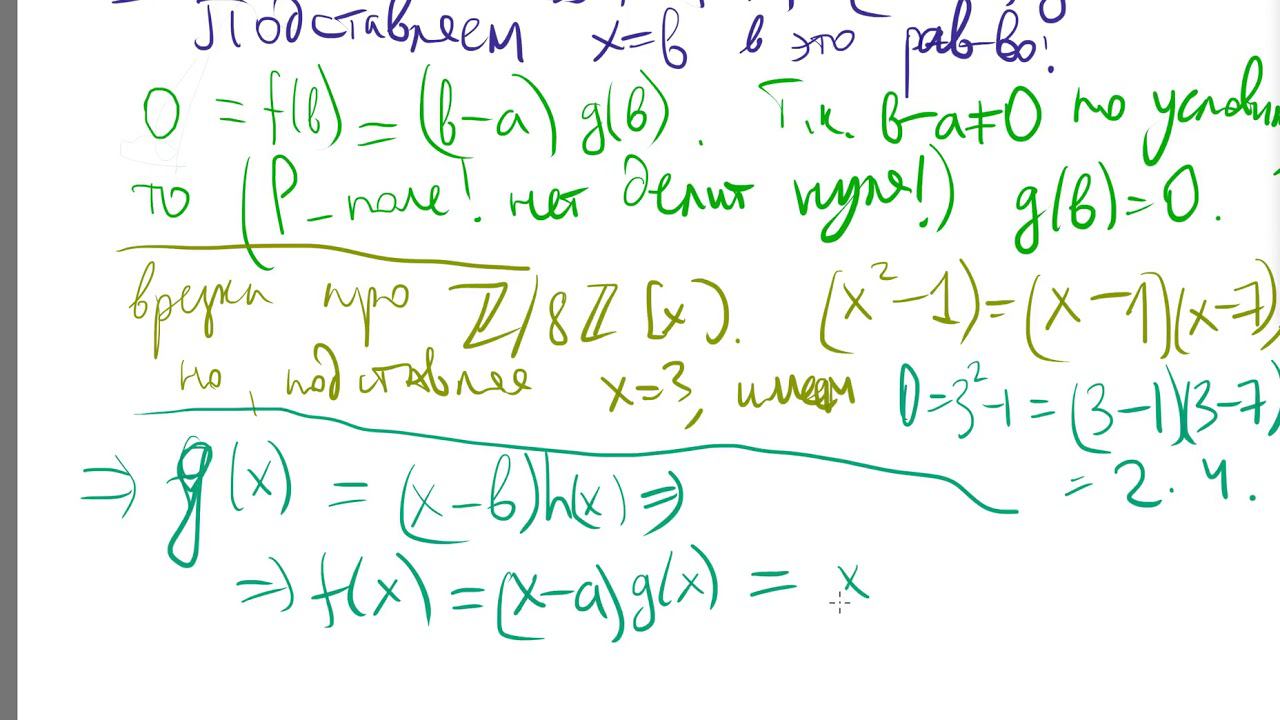 Подставляем x=b в это рав-во!
0 = f(b) = (b-a) g(b). Т.к. b-a≠0 по услови
то (P - поле! нет делит нуля!) g(b)=0.
врезка про ℤ/8ℤ[x]. (x²-1)=(x-1)(x-7)
но, подставляя x=3, имеем 0=3²-1=(3-1)(3-7)
= 2·4.
⇒ g(x) = (x-b)h(x) ⇒
⇒ f(x) = (x-a)g(x) = x